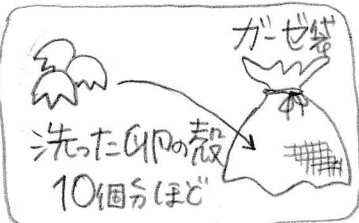 ガーゼ袋
洗った卵の殻
10個分ほど